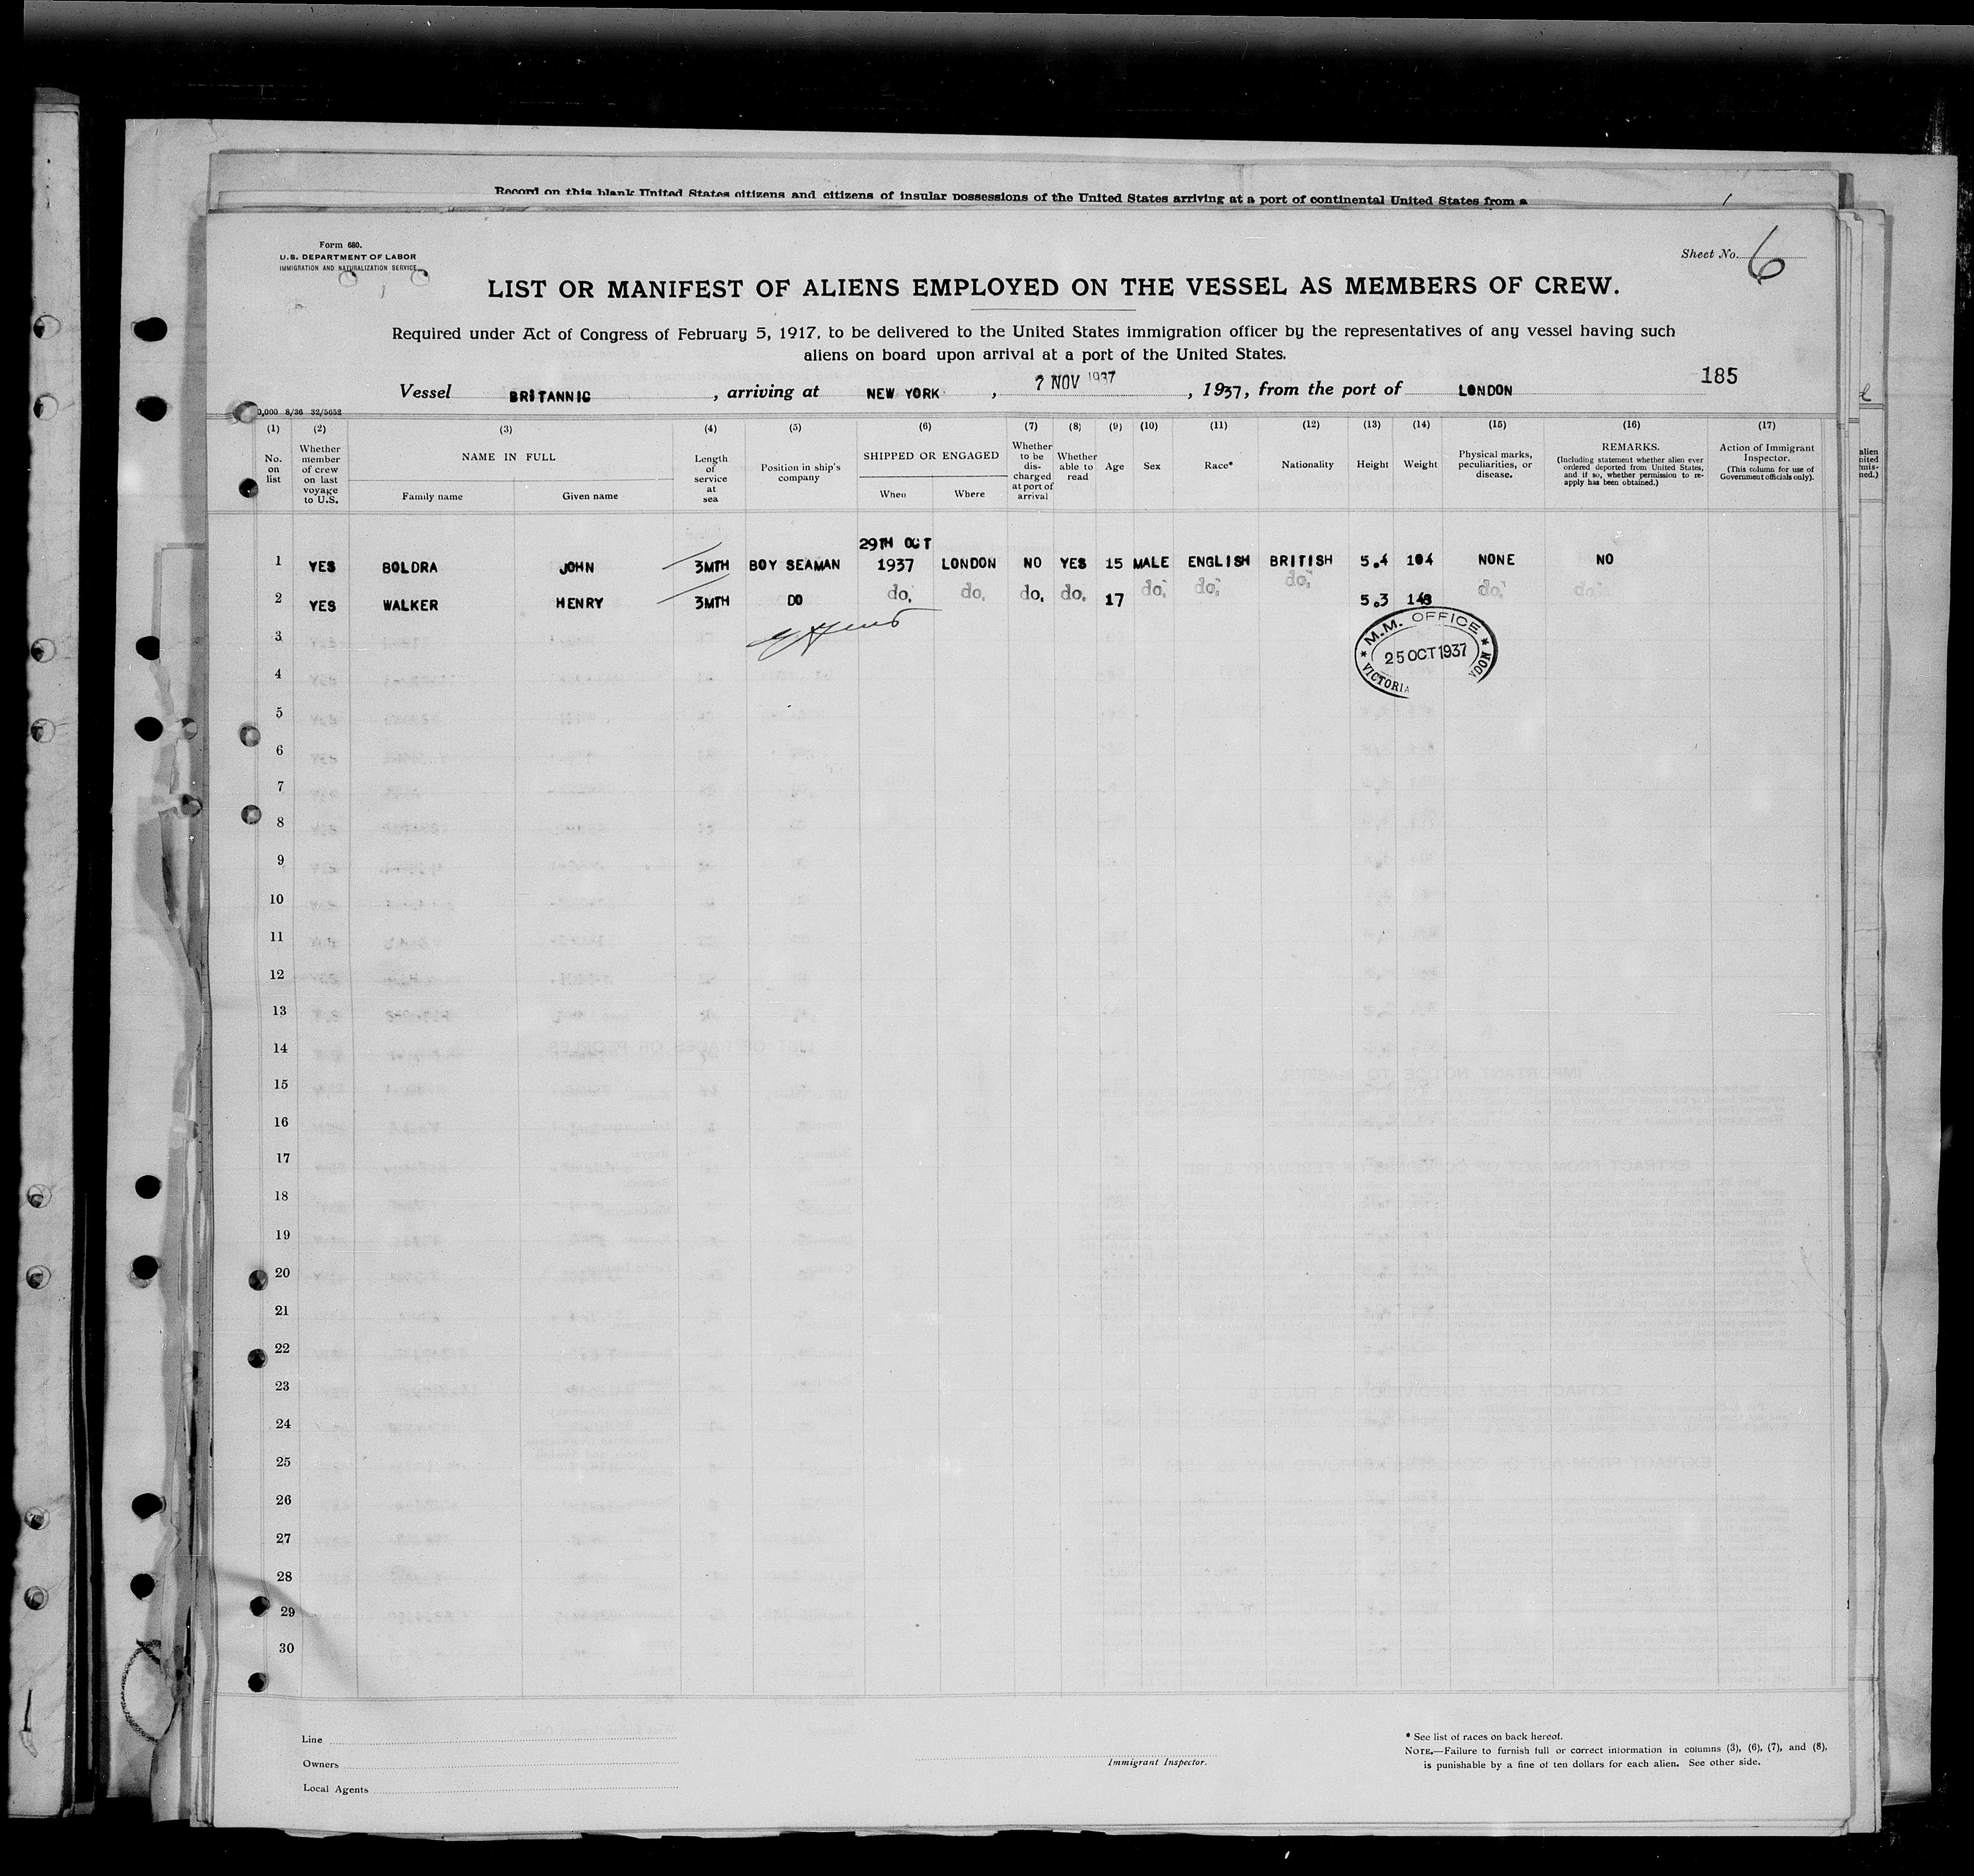 Record on this blank United States citizens and citizens of insular possessions of the United States arriving at a port of continental United States from a
Form 680.
U.S. DEPARTMENT OF LABOR
IMMIGRATION AND NATURALIZATION SERVICE
Sheet No. 6
LIST OR MANIFEST OF ALIENS EMPLOYED ON THE VESSEL AS MEMBERS OF CREW.
Required under Act of Congress of February 5, 1917, to be delivered to the United States immigration officer by the representatives of any vessel having such
aliens on board upon arrival at a port of the United States.
185
Vessel BRITANNIC, arriving at NEW YORK, 7 NOV 1937, 1937, from the port of LONDON
0,000 8/36 32/5652
(1) (2) (3) (4) (5) (6) (7) (8) (9) (10) (11) (12) (13) (14) (15) (16) (17)
No. on list
Whether member of crew on last voyage to U.S.
NAME IN FULL
Family name
Given name
Length of service at sea
Position in ship's company
SHIPPED OR ENGAGED
When
Where
Whether to be discharged at port of arrival
Whether able to read
Age
Sex
Race*
Nationality
Height
Weight
Physical marks, peculiarities, or disease.
REMARKS.
(Including statement whether alien ever ordered deported from United States, and if so, whether permission to re-apply has been obtained.)
Action of Immigrant Inspector.
(This column for use of Government officials only).
29TH OCT
1 YES BOLDRA JOHN 3MTH BOY SEAMAN 1937 LONDON NO YES 15 MALE ENGLISH BRITISH 5.4 104 NONE NO
2 YES WALKER HENRY 3MTH DO do. do. do. do. 17 do. do. do. 5.3 143 do. do.
M.M. OFFICE
25 OCT 1937
VICTORIA NDON
3
4
5
6
7
8
9
10
11
12
13
14
15
16
17
18
19
20
21
22
23
24
25
26
27
28
29
30
Line
Owners
Local Agents
Immigrant Inspector.
* See list of races on back hereof.
NOTE.—Failure to furnish full or correct information in columns (3), (6), (7), and (8),
is punishable by a fine of ten dollars for each alien. See other side.